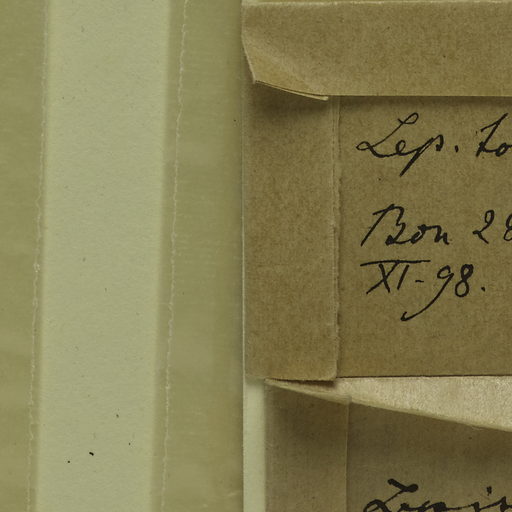 Lep. to
Bon 28
XI-98.